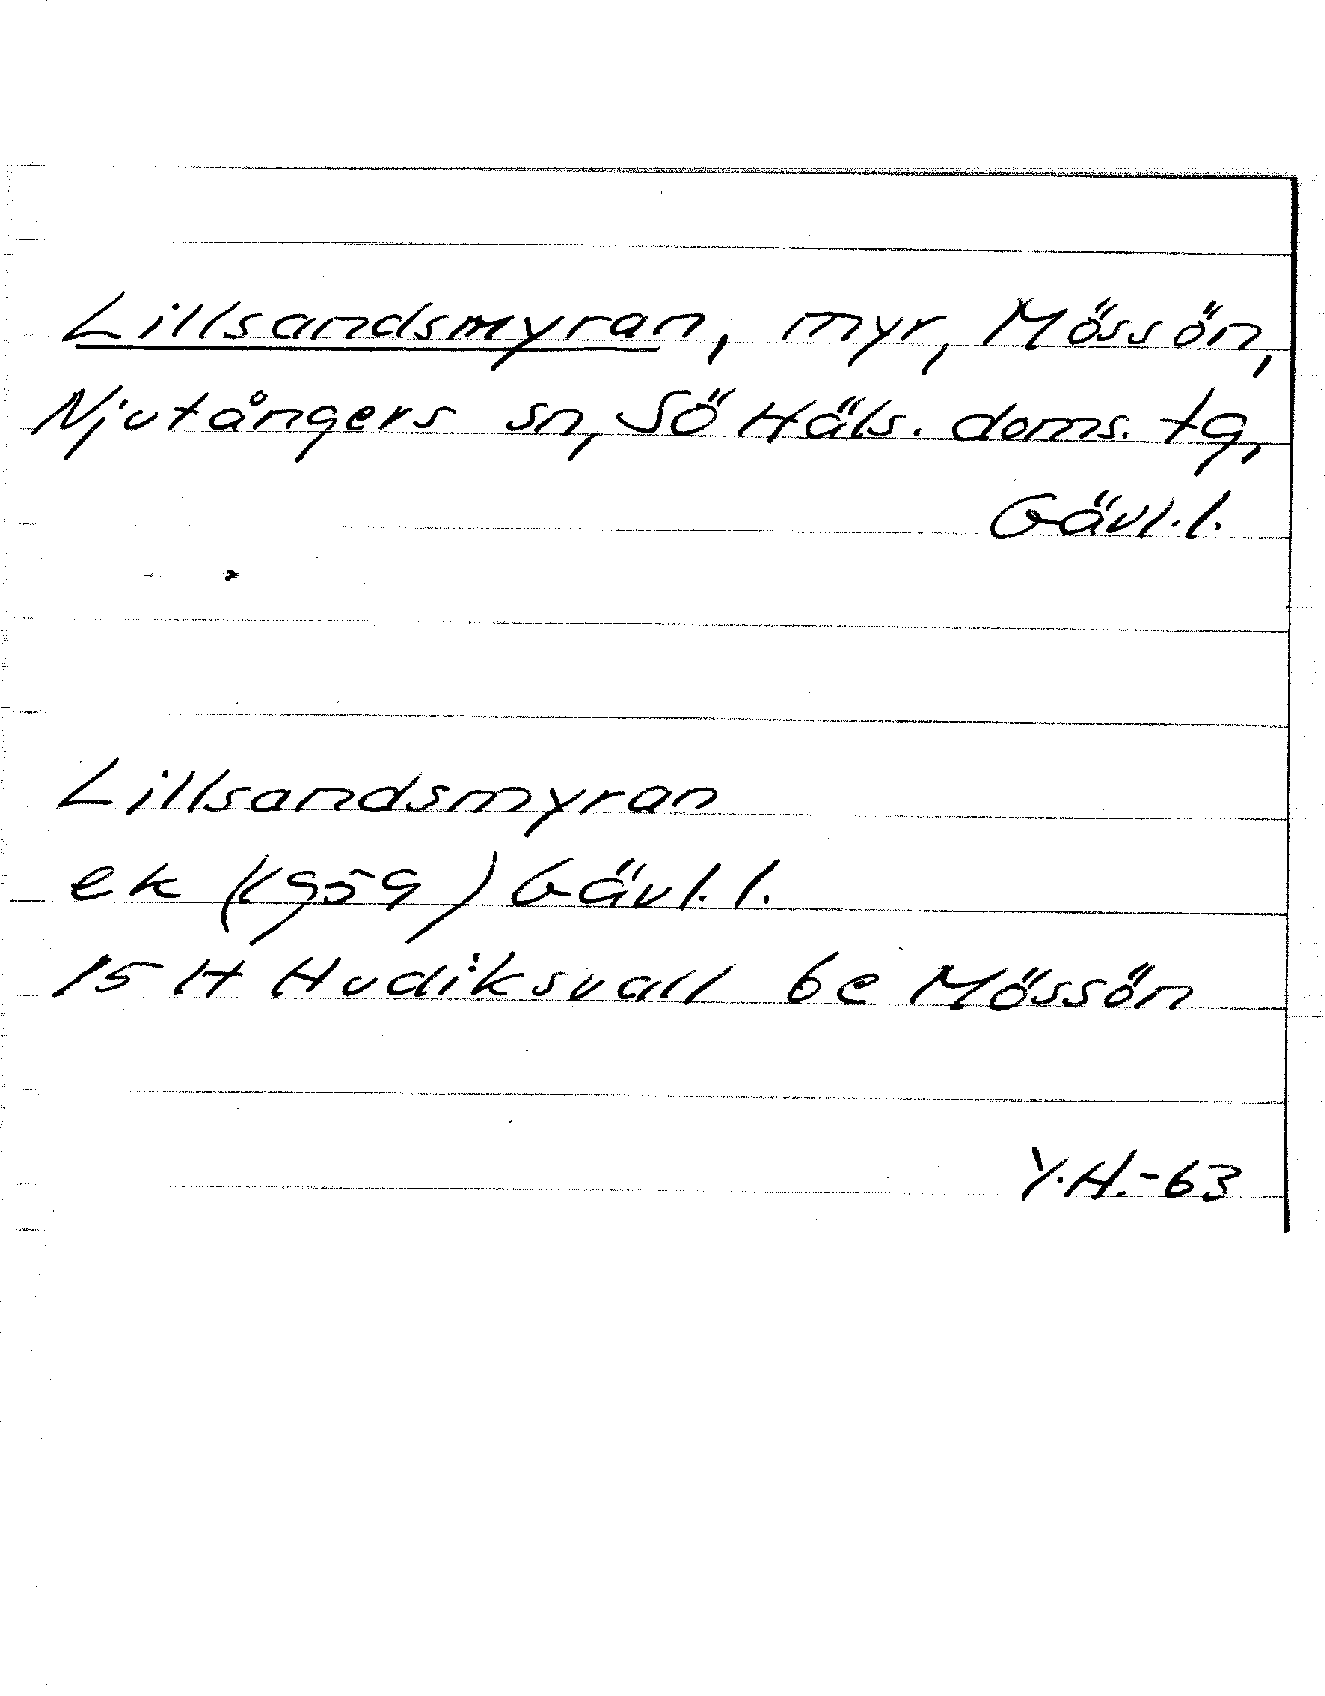 Lillsandsmyran, myr, Mössön,
Njutångers sn, Sö Häls. doms. tg,
Gävl.l.
Lillsandsmyran
ek (1959) Gävl.l.
15 H Hudiksvall 6e Mössön
Y.H.-63